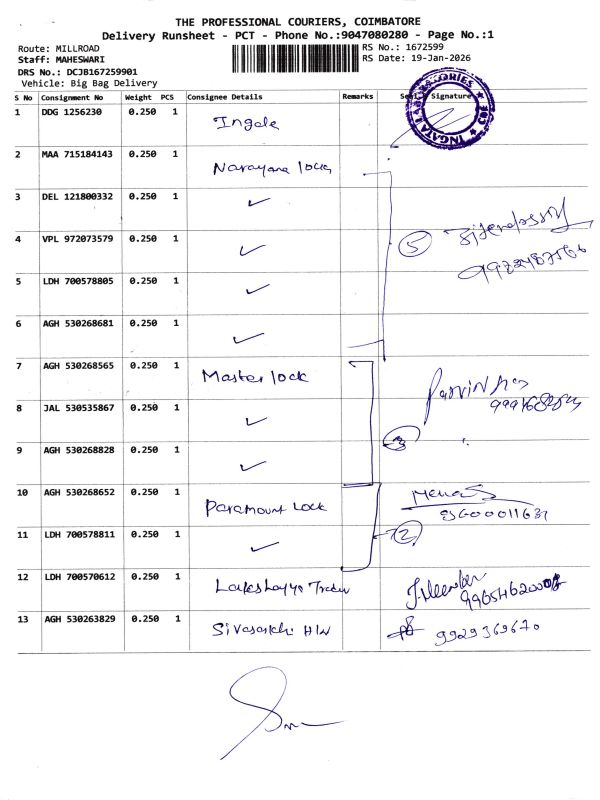 THE PROFESSIONAL COURIERS, COIMBATORE
Delivery Runsheet - PCT - Phone No.:9047080280 - Page No.:1
Route: MILLROAD
Staff: MAHESWARI
DRS No.: DCJB167259901
Vehicle: Big Bag Delivery
RS No.: 1672599
RS Date: 19-Jan-2026
S No Consignment No Weight PCS Consignee Details Remarks Seal Signature
1 DDG 1256230 0.250 1 Ingale
2 MAA 715184143 0.250 1 Narayana lock
3 DEL 121800332 0.250 1 ✓
4 VPL 972073579 0.250 1 ✓ 5
5 LDH 700578805 0.250 1 ✓
6 AGH 530268681 0.250 1 ✓
7 AGH 530268565 0.250 1 Master lock
8 JAL 530535867 0.250 1 ✓
9 AGH 530268828 0.250 1 ✓ 3
10 AGH 530268652 0.250 1 Paramount Lock
11 LDH 700578811 0.250 1 ✓ 2
12 LDH 700570612 0.250 1
13 AGH 530263829 0.250 1 Sivasakthi H/W 9929369670